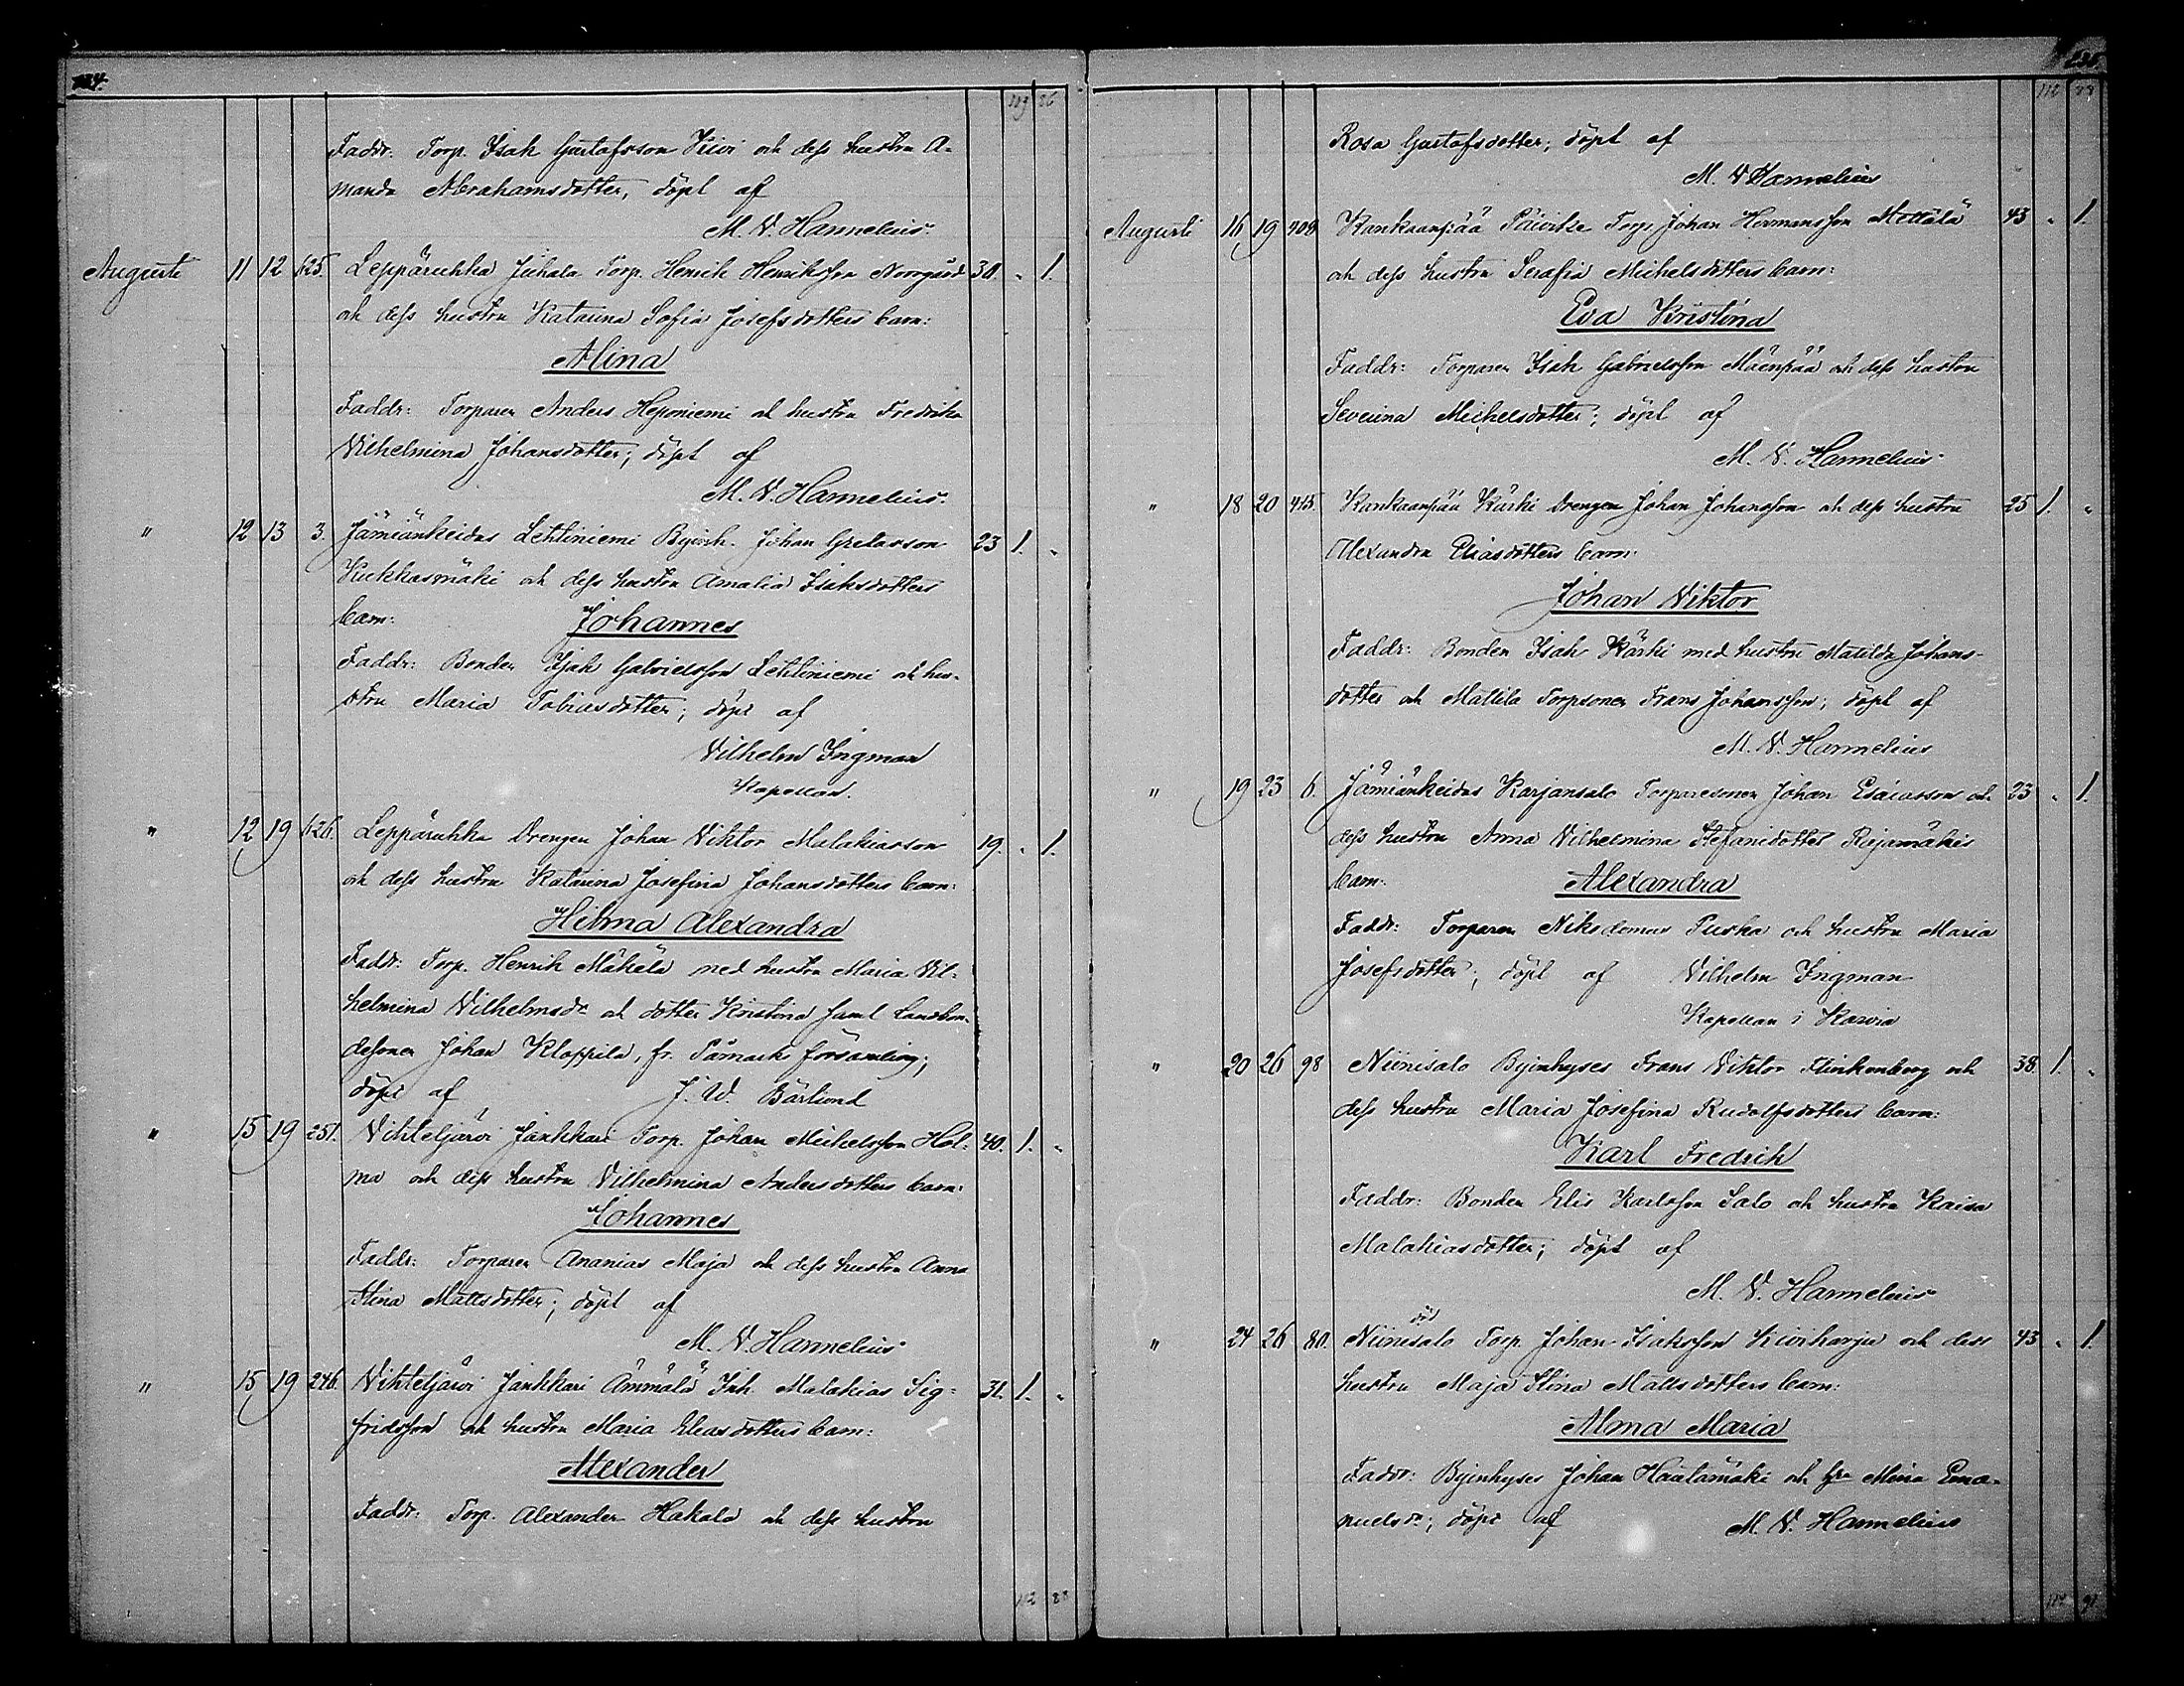 109 86
Faddr. Torp. Isak Gustafsson Kivi och dess hustru A-
manda Abrahamsdotter, döpt af
M. V. Hannelius.
Augusti 11 12 625. Leppäruhka Juhala Torp. Henrik Henriksson Norrgård 30. " 1.
och dess hustru Katarina Sofia Josefsdotters barn:
Alina
Faddr: Torparen Anders Heponiemi och hustru Fredrika
Vilhelmina Johansdotter; döpt af
M. V. Hannelius.
" 12 13 3. Jämiänkeidas Lehtiniemi Byinh. Johan Gretasson 23 1. "
Kukkasmäki och dess hustru Amalia Isaksdotters
barn: Johannes
Faddr: Bonden Isak Gabrielsson Lehtiniemi och hu-
stru Maria Tobiasdotter; döpt af
Vilhelm Ingman
Kapellan.
" 12 19 626. Leppäruhka Drengen Johan Viktor Malakiasson 19. " 1.
och dess hustru Katarina Josefina Johansdotters barn:
Hilma Alexandra
Faddr: Torp. Henrik Mäkelä med hustru Maria Vil-
helmina Vilhelmsdr och dotter Kristina saml Landbon-
desonen Johan Kloppila, fr. Påmark församling;
döpt af J. W. Bärlund
" 15 19 251. Vihteljärvi Jankkari Torp. Johan Michelsson Hol- 40. 1. "
ma och dess hustru Vilhelmina Andersdotters barn:
Johannes
Faddr: Torparen Ananias Maja och dess hustru Anna
Stina Mattsdotter; döpt af
M. V. Hannelius
" 15 19 246. Vihteljärvi Jankkari Ämmälä Inh. Malakias Sig- 31. 1. "
fridsson och hustru Maria Eliasdotters barn:
Alexander
Faddr: Torp. Alexander Hakala och dess hustru
112 88
112 88
Rosa Gustafsdotter; döpt af
M. V. Hannelius
Augusti 16 19 408 Kankaanpää Päivike Torp. Johan Hermansson Mottälä 43 " 1.
och dess hustru Serafia Michelsdotters barn:
Eva Kristina
Faddr: Torparen Isak Gabrielsson Mäenpää och dess hustru
Severina Michelsdotter; döpt af
M. V. Hannelius
" 18 20 415. Kankaanpää Kärki Drengen Johan Johansson och dess hustru 25 1. "
Alexandra Eliasdotters barn:
Johan Viktor
Faddr: Bonden Isak Kärki med hustru Matilda Johans-
dotter och Mattila Torpsonen Frans Johansson; döpt af
M. V. Hannelius
" 19 23 6. Jämiänkeidas Karjansalo Torparesonen Johan Esaiasson och 23 " 1.
dess hustru Anna Vilhelmina Stefanidotter Rajamäkis
barn: Alexandra
Faddr: Torparen Nikodemus Puska och hustru Maria
Josefsdotter; döpt af Vilhelm Ingman
Kapellan i Karvia
" 20 26 98 Niinisalo Byinhyses Frans Viktor Flinkenberg och 38. 1. "
dess hustru Maria Josefina Rudolfsdotters barn:
Karl Fredrik
Faddr: Bonden Elis Karlsson Salo och hustru Kaisa
Malakiasdotter; döpt af
M. V. Hannelius
död
" 24 26 80. Niinisalo Torp. Johan Isaksson Kiviharju och dess 43 " 1.
hustru Maja Stina Mattsdotters barn:
Alma Maria
Faddr: Byinhyses Johan Hietamäki och hru Mina Ema-
nuelsdr; döpt af M. V. Hannelius
114 91